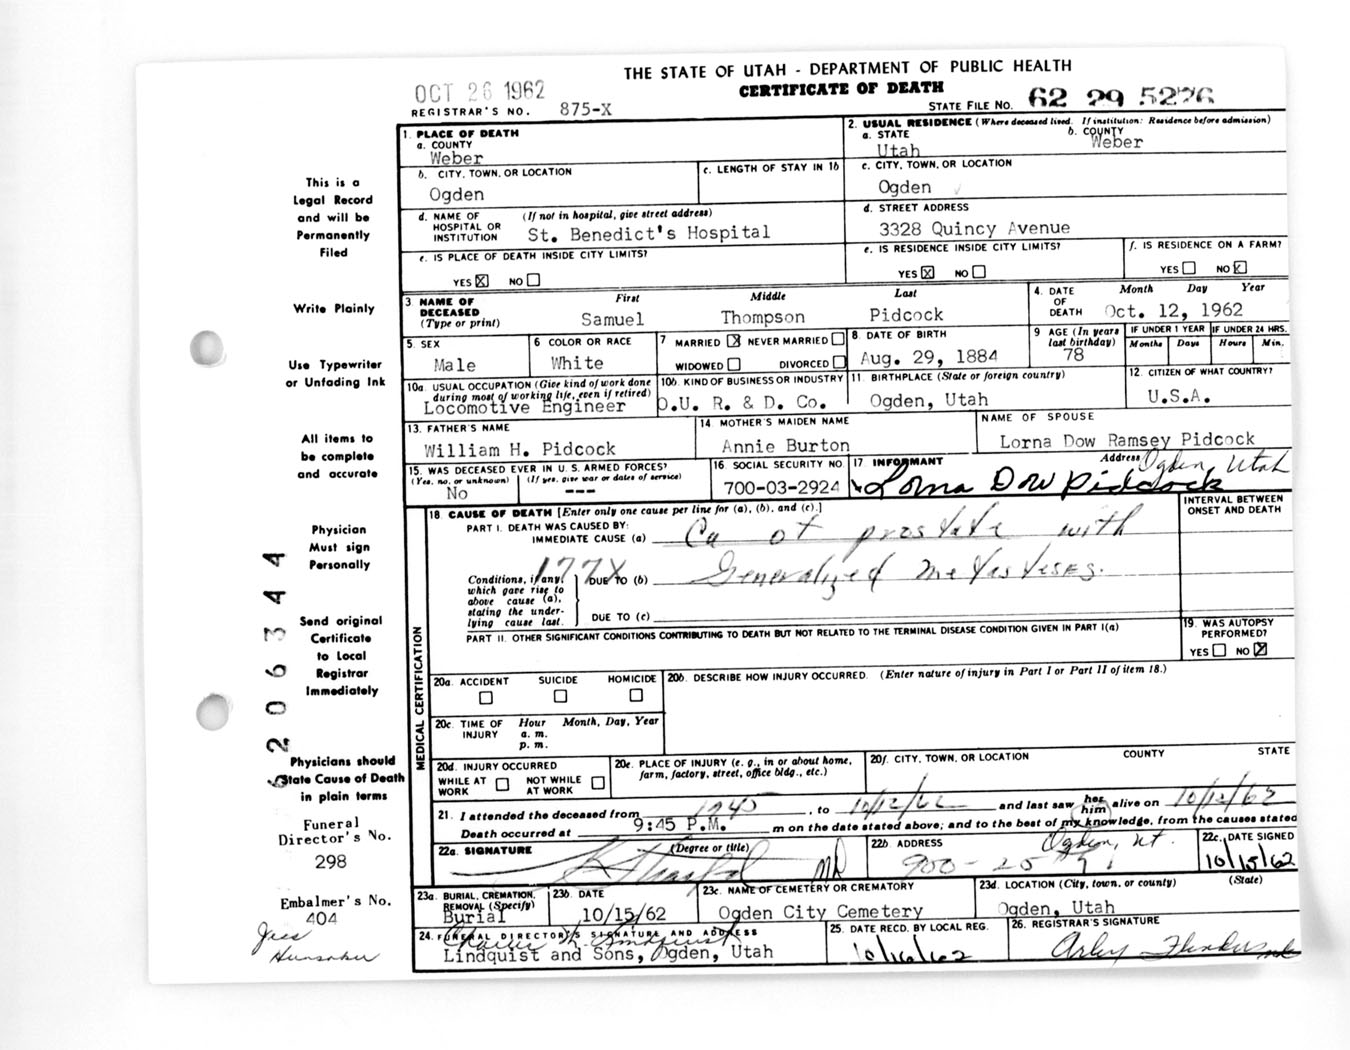 THE STATE OF UTAH - DEPARTMENT OF PUBLIC HEALTH
OCT 26 1962
CERTIFICATE OF DEATH
REGISTRAR'S NO. 875-X
STATE FILE NO. 62 29 5276
This is a
Legal Record
and will be
Permanently
Filed
Write Plainly
Use Typewriter
or Unfading Ink
All items to
be complete
and accurate
Physician
Must sign
Personally
Send original
Certificate
to Local
Registrar
Immediately
Physicians should
State Cause of Death
in plain terms
Funeral
Director's No.
298
Embalmer's No.
404
Jess
Hunsaker
206344
1. PLACE OF DEATH
a. COUNTY
Weber
2. USUAL RESIDENCE (Where deceased lived. If institution: Residence before admission)
a. STATE b. COUNTY
Utah Weber
b. CITY, TOWN, OR LOCATION
Ogden
c. LENGTH OF STAY IN 1b
c. CITY, TOWN, OR LOCATION
Ogden
d. NAME OF (If not in hospital, give street address)
HOSPITAL OR
INSTITUTION St. Benedict's Hospital
d. STREET ADDRESS
3328 Quincy Avenue
e. IS PLACE OF DEATH INSIDE CITY LIMITS?
YES ☒ NO ☐
e. IS RESIDENCE INSIDE CITY LIMITS?
YES ☒ NO ☐
f. IS RESIDENCE ON A FARM?
YES ☐ NO ☒
3. NAME OF First Middle Last
DECEASED
(Type or print) Samuel Thompson Pidcock
4. DATE Month Day Year
OF
DEATH Oct. 12, 1962
5. SEX
Male
6 COLOR OR RACE
White
7 MARRIED ☒ NEVER MARRIED ☐
WIDOWED ☐ DIVORCED ☐
8. DATE OF BIRTH
Aug. 29, 1884
9 AGE (In years
last birthday)
78
IF UNDER 1 YEAR IF UNDER 24 HRS.
Months Days Hours Min.
10a. USUAL OCCUPATION (Give kind of work done
during most of working life, even if retired)
Locomotive Engineer
10b. KIND OF BUSINESS OR INDUSTRY
O.U. R. & D. Co.
11. BIRTHPLACE (State or foreign country)
Ogden, Utah
12. CITIZEN OF WHAT COUNTRY?
U.S.A.
13. FATHER'S NAME
William H. Pidcock
14 MOTHER'S MAIDEN NAME
Annie Burton
NAME OF SPOUSE
Lorna Dow Ramsey Pidcock
15. WAS DECEASED EVER IN U.S. ARMED FORCES?
(Yes, no, or unknown) (If yes, give war or dates of service)
No ---
16 SOCIAL SECURITY NO.
700-03-2924
17 INFORMANT Address Ogden, Utah
Lorna Dow Pidcock
MEDICAL CERTIFICATION
18. CAUSE OF DEATH [Enter only one cause per line for (a), (b), and (c).]
INTERVAL BETWEEN
ONSET AND DEATH
PART I. DEATH WAS CAUSED BY:
IMMEDIATE CAUSE (a) Ca of prostate with
177X
Conditions, if any,
which gave rise to
above cause (a),
stating the under-
lying cause last.
DUE TO (b) Generalized metasteses.
DUE TO (c)
PART II. OTHER SIGNIFICANT CONDITIONS CONTRIBUTING TO DEATH BUT NOT RELATED TO THE TERMINAL DISEASE CONDITION GIVEN IN PART I(a)
19. WAS AUTOPSY
PERFORMED?
YES ☐ NO ☒
20a. ACCIDENT SUICIDE HOMICIDE
☐ ☐ ☐
20b. DESCRIBE HOW INJURY OCCURRED. (Enter nature of injury in Part I or Part II of item 18.)
20c. TIME OF Hour Month, Day, Year
INJURY a. m.
p. m.
20d. INJURY OCCURRED
WHILE AT ☐ NOT WHILE ☐
WORK AT WORK
20e. PLACE OF INJURY (e. g., in or about home,
farm, factory, street, office bldg., etc.)
20f. CITY, TOWN, OR LOCATION COUNTY STATE
21. I attended the deceased from 1945, to 10/12/62 and last saw her him alive on 10/12/62
Death occurred at 9:45 P.M. m on the date stated above; and to the best of my knowledge, from the causes stated
22a. SIGNATURE (Degree or title)
MD
22b. ADDRESS Ogden, Ut.
900-25
22c. DATE SIGNED
10/15/62
23a. BURIAL, CREMATION,
REMOVAL (Specify)
Burial
23b. DATE
10/15/62
23c. NAME OF CEMETERY OR CREMATORY
Ogden City Cemetery
23d. LOCATION (City, town, or county) (State)
Ogden, Utah
24. FUNERAL DIRECTOR'S SIGNATURE AND ADDRESS
Lindquist and Sons, Ogden, Utah
25. DATE RECD. BY LOCAL REG.
10/16/62
26. REGISTRAR'S SIGNATURE